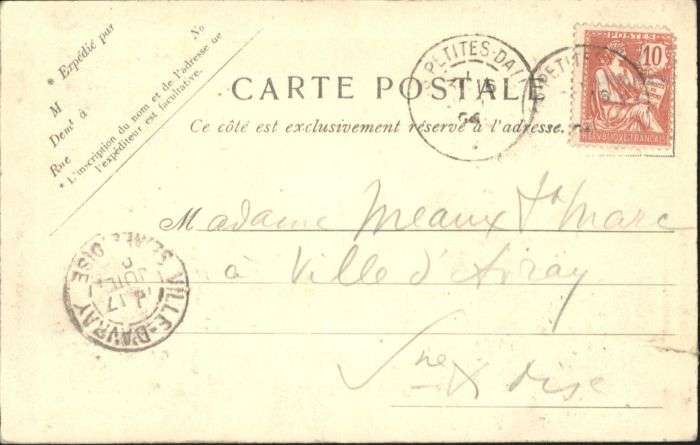 * Expédié par
No
M
Demt à
Rue
* L'inscription du nom et de l'adresse de
l'expéditeur est facultative.
CARTE POSTALE
Ce côté est exclusivement réservé à l'adresse.
PETITES-DA
6
04
PETITE
6
POSTES
10
REPUBLIQUE FRANÇAISE
Madame Meaux St Marc
à Ville d'Avray
Sne & Oise
VILLE-D'AVRAY
SEINE OISE
17
JUIL